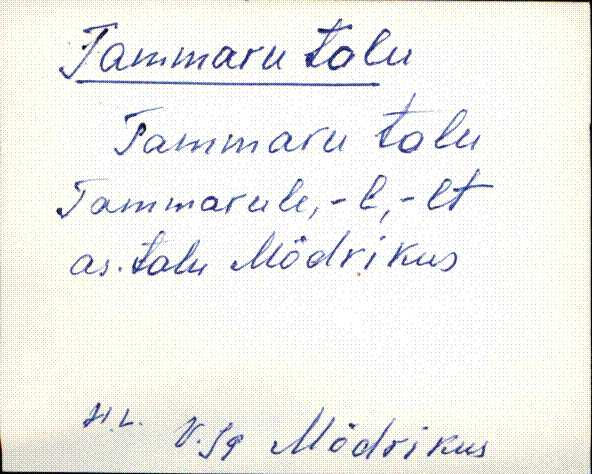 Tammaru talu
Tammaru talu
Tammarule, -l, -lt
as. talu Mõdrikus
V.Jg Mõdrikus